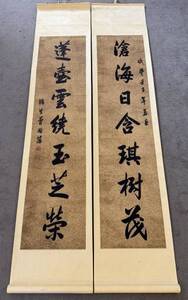 滄海日含琪樹茂
蓬壺雲繞玉芝榮